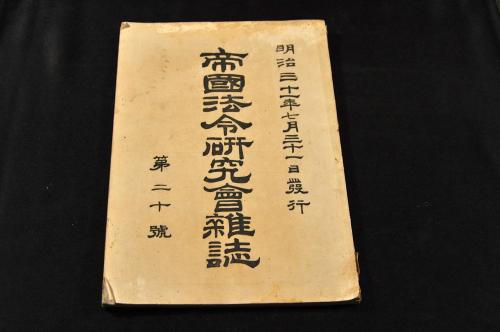 明治三十一年七月三十一日發行
帝國法令研究會雜誌
第二十號